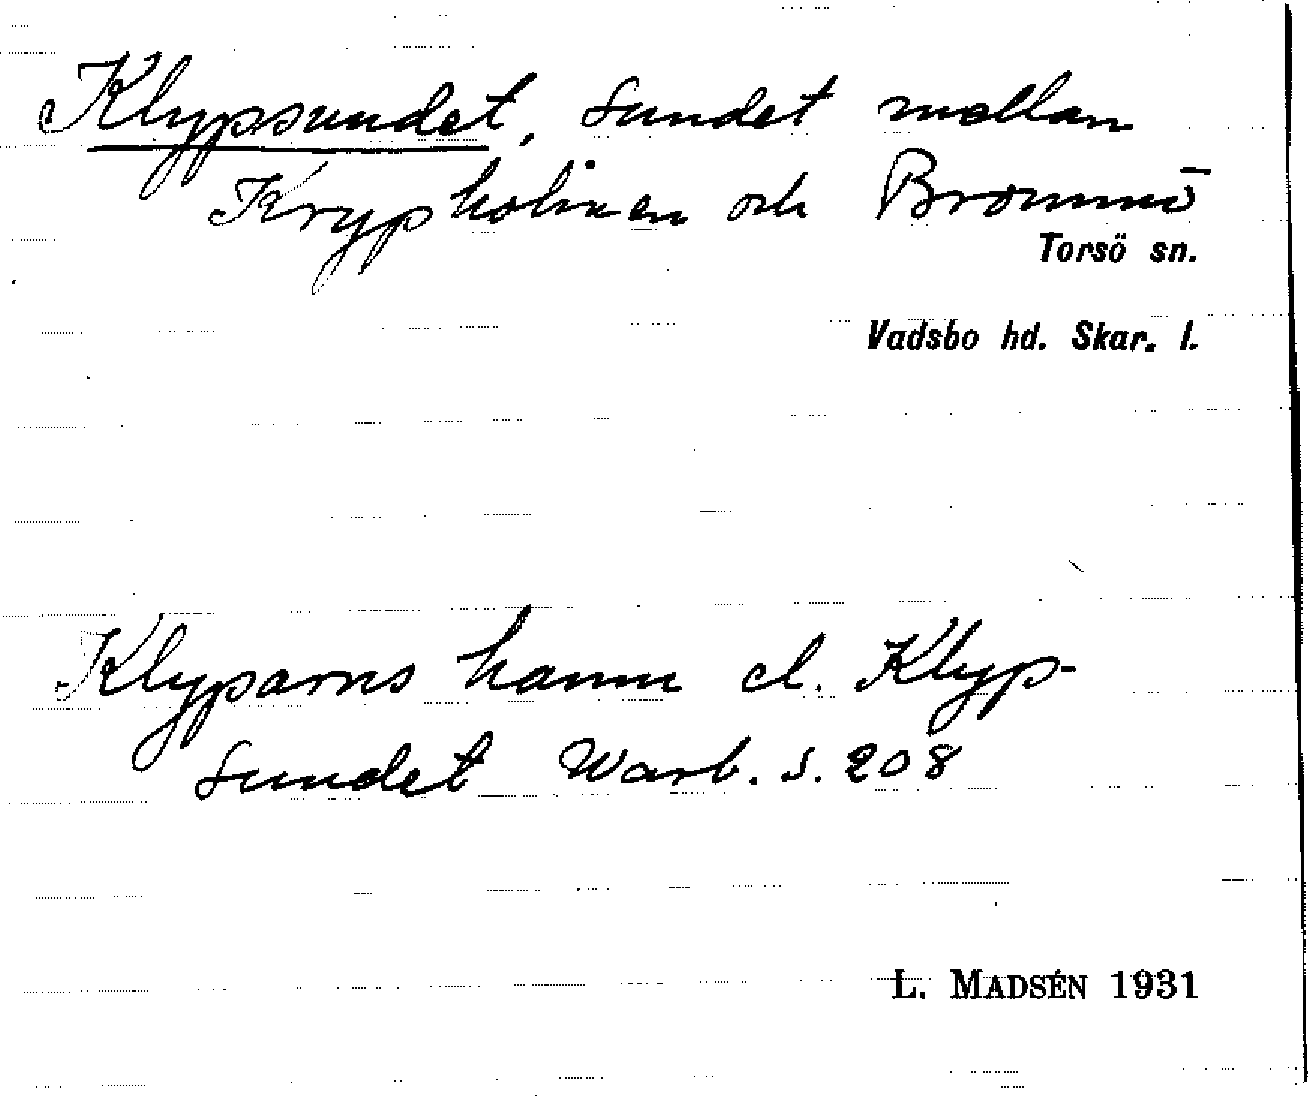 Klypsundet, sundet mellan
Krypholmen och Brommö
Torsö sn.
Vadsbo hd. Skar. l.
Klyparns hamn el. Klyp-
sundet Warb. s. 208
L. MADSÉN 1931